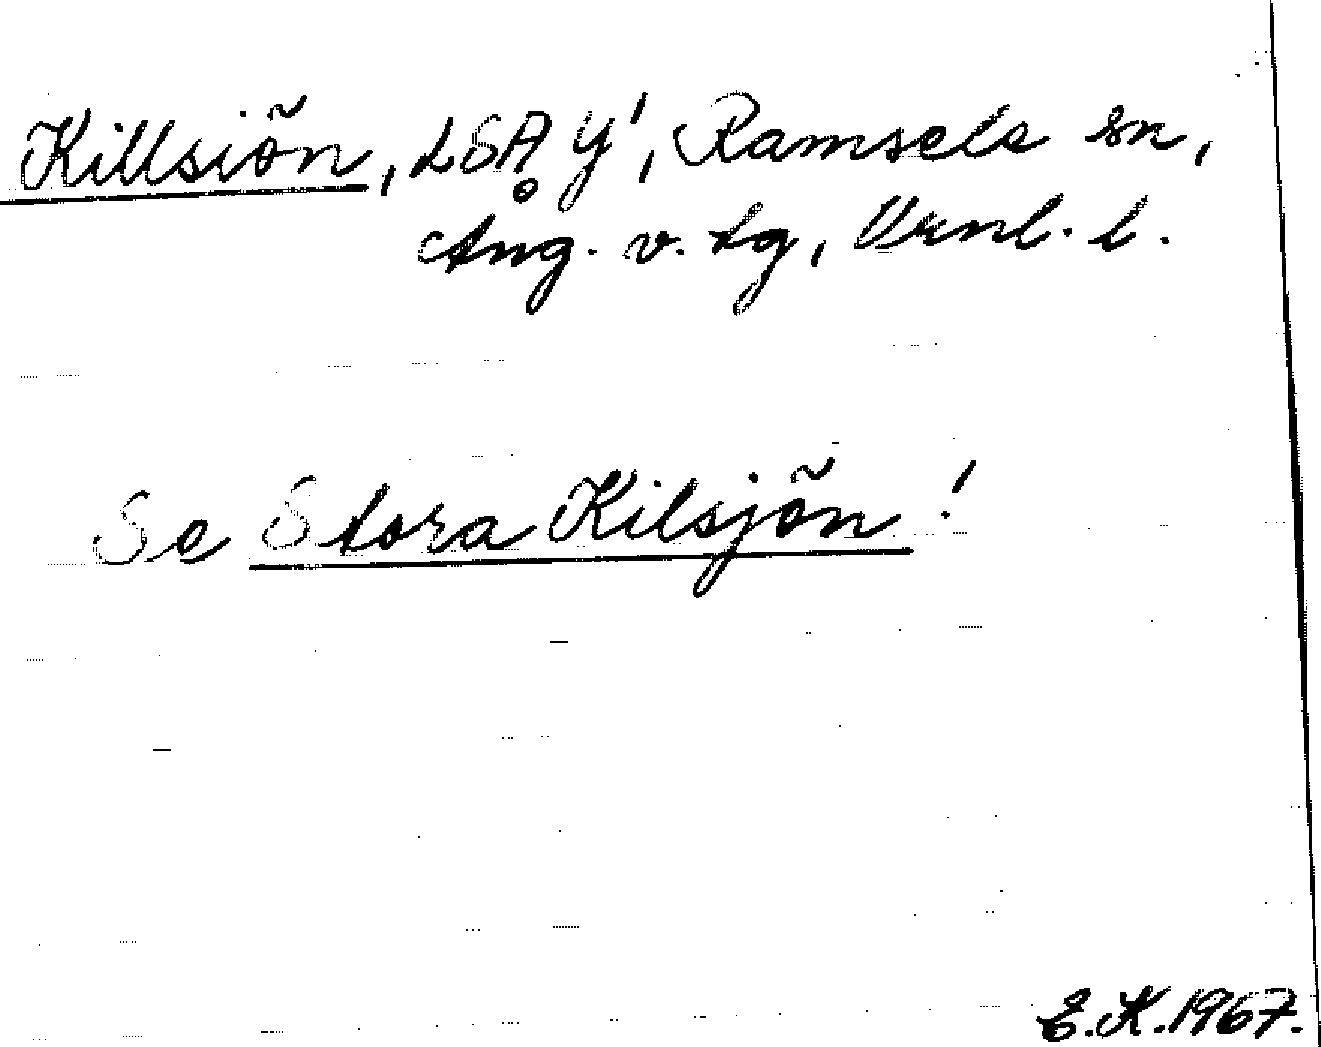 Killsiön, LSA Y', Ramsele sn,
Ång. v. tg, Vrnl. l.
Se Stora Kilsjön!
E.K. 1967.